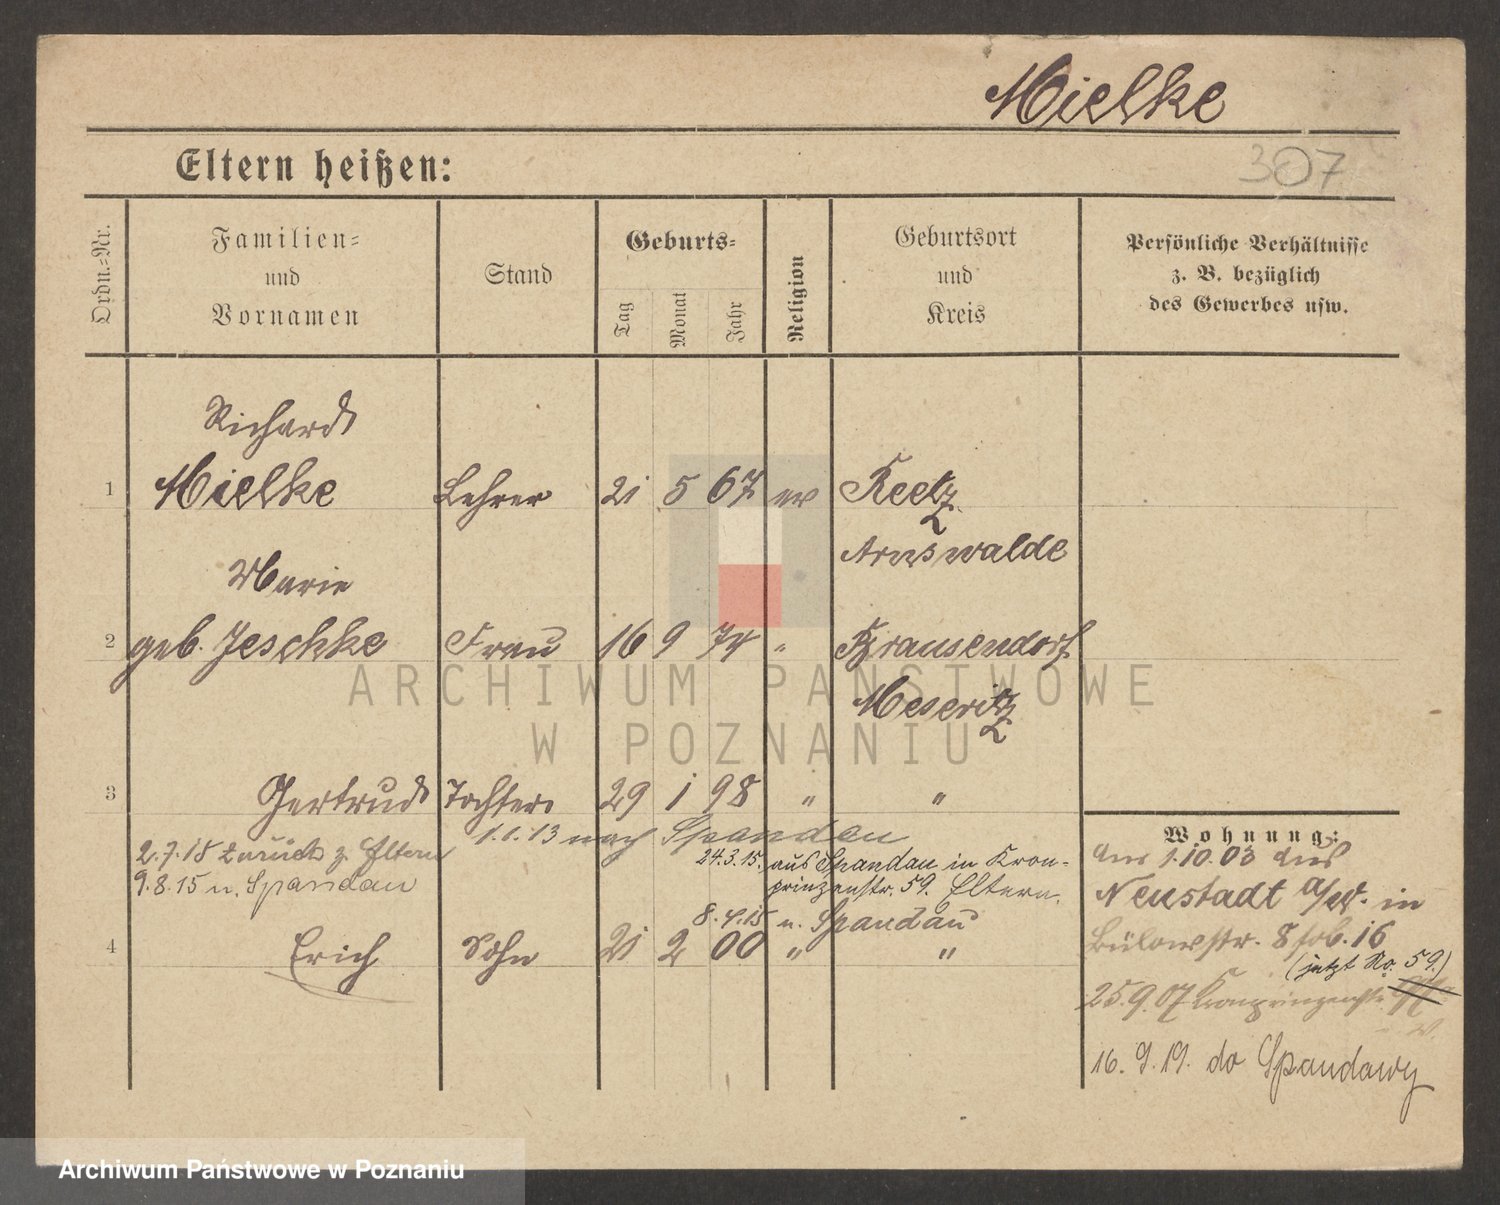 Mielke
Eltern heißen:
307
Ordn.-Nr.
Familien-
und
Vornamen
Stand
Geburts-
Tag
Monat
Jahr
Religion
Geburtsort
und
Kreis
Persönliche Verhältnisse
z. B. bezüglich
des Gewerbes usw.
Richard
1 Mielke Lehrer 21 5 67 ev Reetz
Arnswalde
Marie
2 geb. Jeschke Frau 16 9 74 " Krausendorf
Meseritz
3 Gertrud Tochter 29 1 98 " "
1.1.13 nach Spandau
2.7.15 zurück z. Eltern
24.3.15. aus Spandau in Kron-
prinzenstr. 59. Eltern.
9.8.15 n. Spandau
8.4.15 n. Spandau
4 Erich Sohn 21 2 00 " "
Wohnung:
1.10.03 aus
Neustadt a/W. in
Bülowstr. 8 16
(jetzt No. 59.)
25.9.07 Kronprinzenstr.
16.9.19. do Spandawy
ARCHIWUM PAŃSTWOWE
W POZNANIU
Archiwum Państwowe w Poznaniu